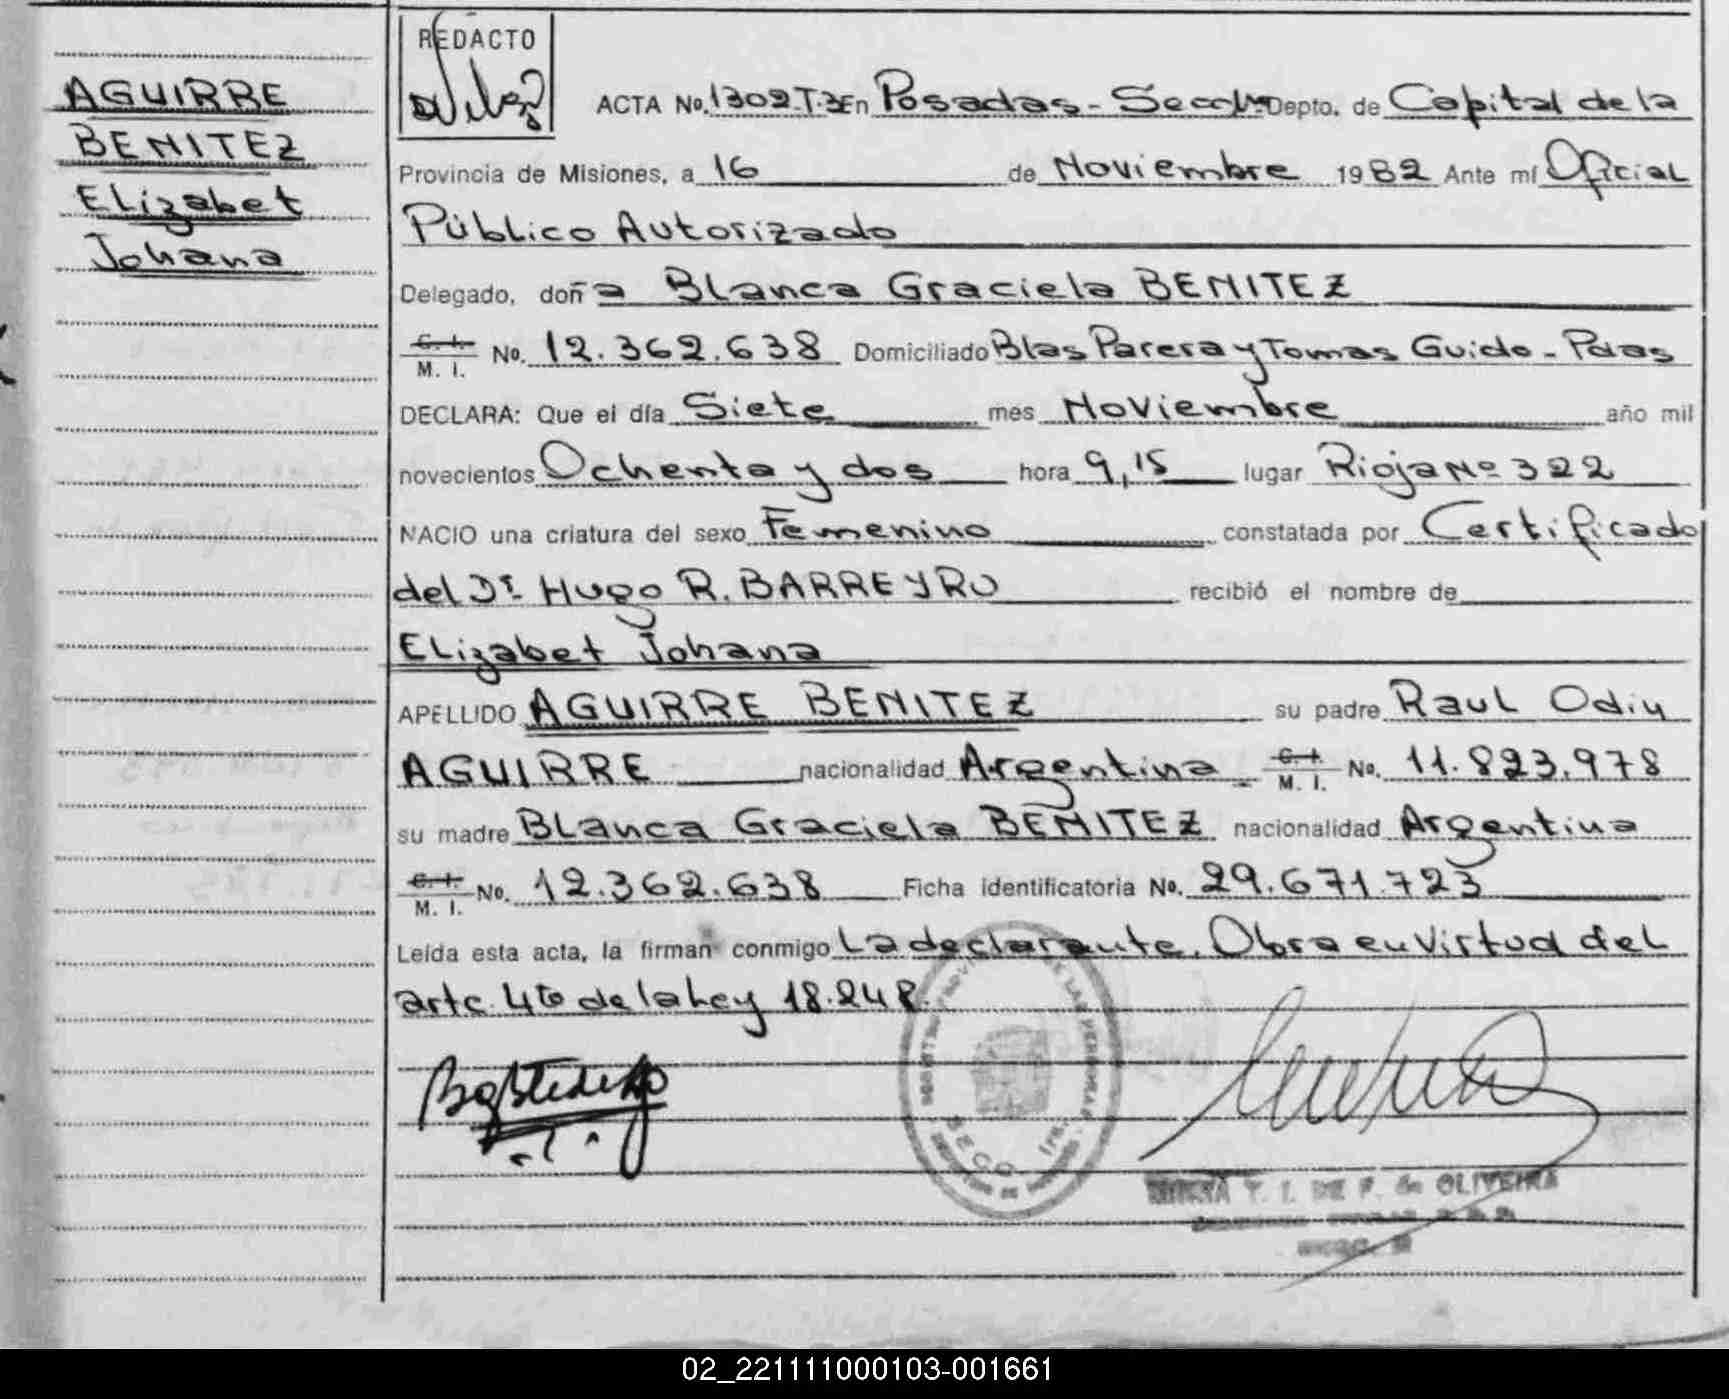 AGUIRRE
BENITEZ
Elizabet
Johana
REDACTO
ACTA No. 1302.T.3 En Posadas - Secc. Depto. de Capital de la
Provincia de Misiones, a 16 de Noviembre 1982 Ante mí Oficial
Público Autorizado
Delegado, doña Blanca Graciela BENITEZ
C. I.
M. I. No. 12.362.638 Domiciliado Blas Parera y Tomas Guido - Pdas
DECLARA: Que el día Siete mes Noviembre año mil
novecientos Ochenta y dos hora 9,15 lugar Rioja Nº 322
NACIO una criatura del sexo Femenino constatada por Certificado
del Dr. Hugo R. BARREYRO recibió el nombre de
Elizabet Johana
APELLIDO AGUIRRE BENITEZ su padre Raul Odin
AGUIRRE nacionalidad Argentina C. I.
M. I. No. 11.823.978
su madre Blanca Graciela BENITEZ nacionalidad Argentina
C. I.
M. I. No. 12.362.638 Ficha identificatoria No. 29.671.723
Leída esta acta, la firman conmigo La declarante. Obra en virtud del
artc. 4to de la Ley 18.248.
SECC. 1ra.
T. I. DE F. de OLIVEIRA
02_221111000103-001661